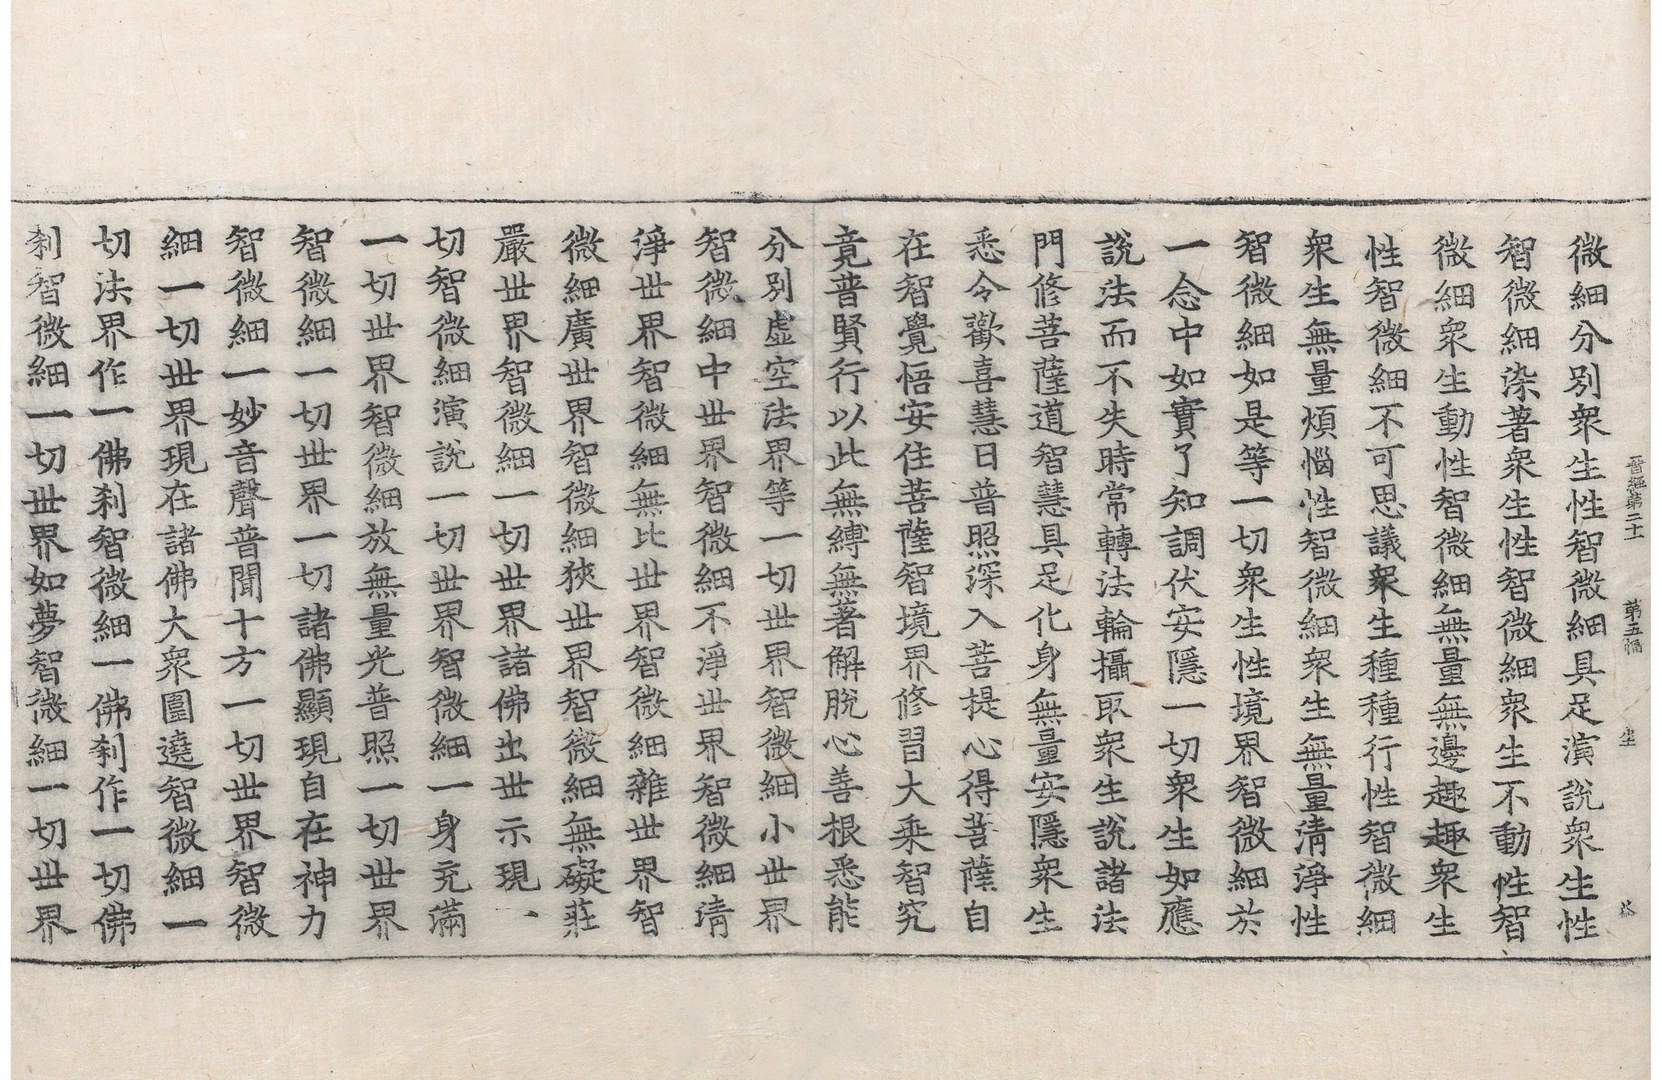 晉經第二十 第五幅 坐
微細分別衆生性智微細具足演說衆生性
智微細染著衆生性智微細衆生不動性智
微細衆生動性智微細無量無邊趣趣衆生
性智微細不可思議衆生種種行性智微細
衆生無量煩惱性智微細衆生無量清淨性
智微細如是等一切衆生性境界智微細於
一念中如實了知調伏安隱一切衆生如應
說法而不失時常轉法輪攝取衆生說諸法
門修菩薩道智慧具足化身無量安隱衆生
悉令歡喜慧日普照深入菩提心得菩薩自
在智覺悟安住菩薩智境界修習大乘智究
竟普賢行以此無縛無著解脫心善根悉能
分別虛空法界等一切世界智微細小世界
智微細中世界智微細不淨世界智微細清
淨世界智微細無比世界智微細雜世界智
微細廣世界智微細狹世界智微細無礙莊
嚴世界智微細一切世界諸佛出世示現一
切智微細演說一切世界智微細一身充滿
一切世界智微細放無量光普照一切世界
智微細一切世界一切諸佛顯現自在神力
智微細一妙音聲普聞十方一切世界智微
細一切世界現在諸佛大衆圍遶智微細一
切法界作一佛刹智微細一佛刹作一切佛
刹智微細一切世界如夢智微細一切世界